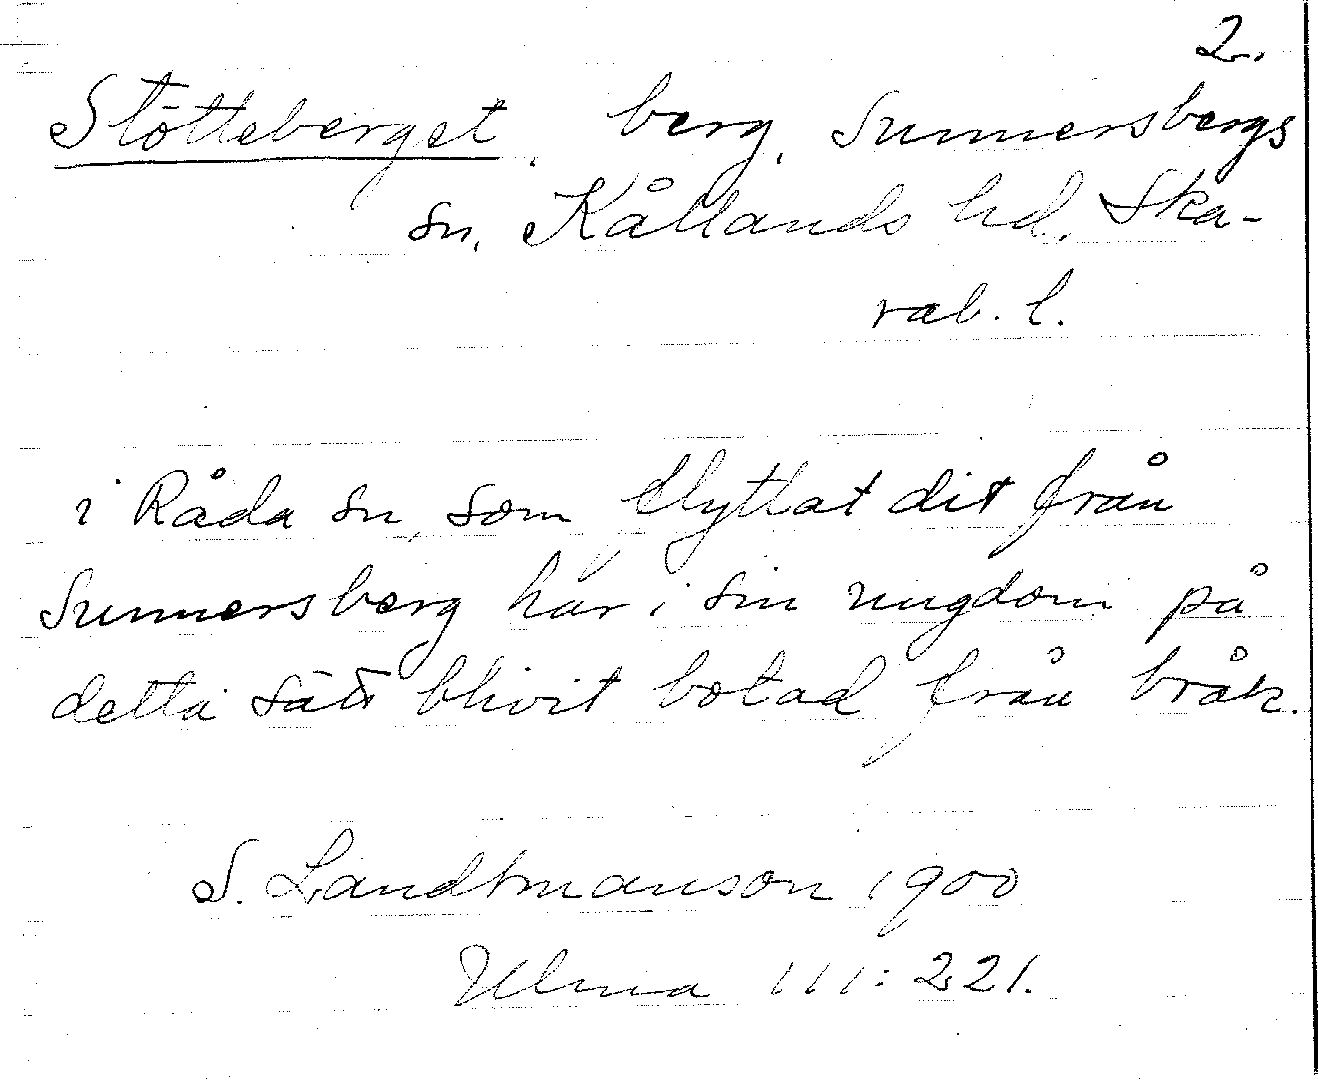 2.
Stötteberget, berg, Sunnersbergs
sn, Kållands hd. Ska-
rab. l.
i Råda sn, som flyttat dit från
Sunnersberg har i sin ungdom på
detta sätt blivit botad från bråk.
S. Landtmanson 1900
Ulma 111:221.